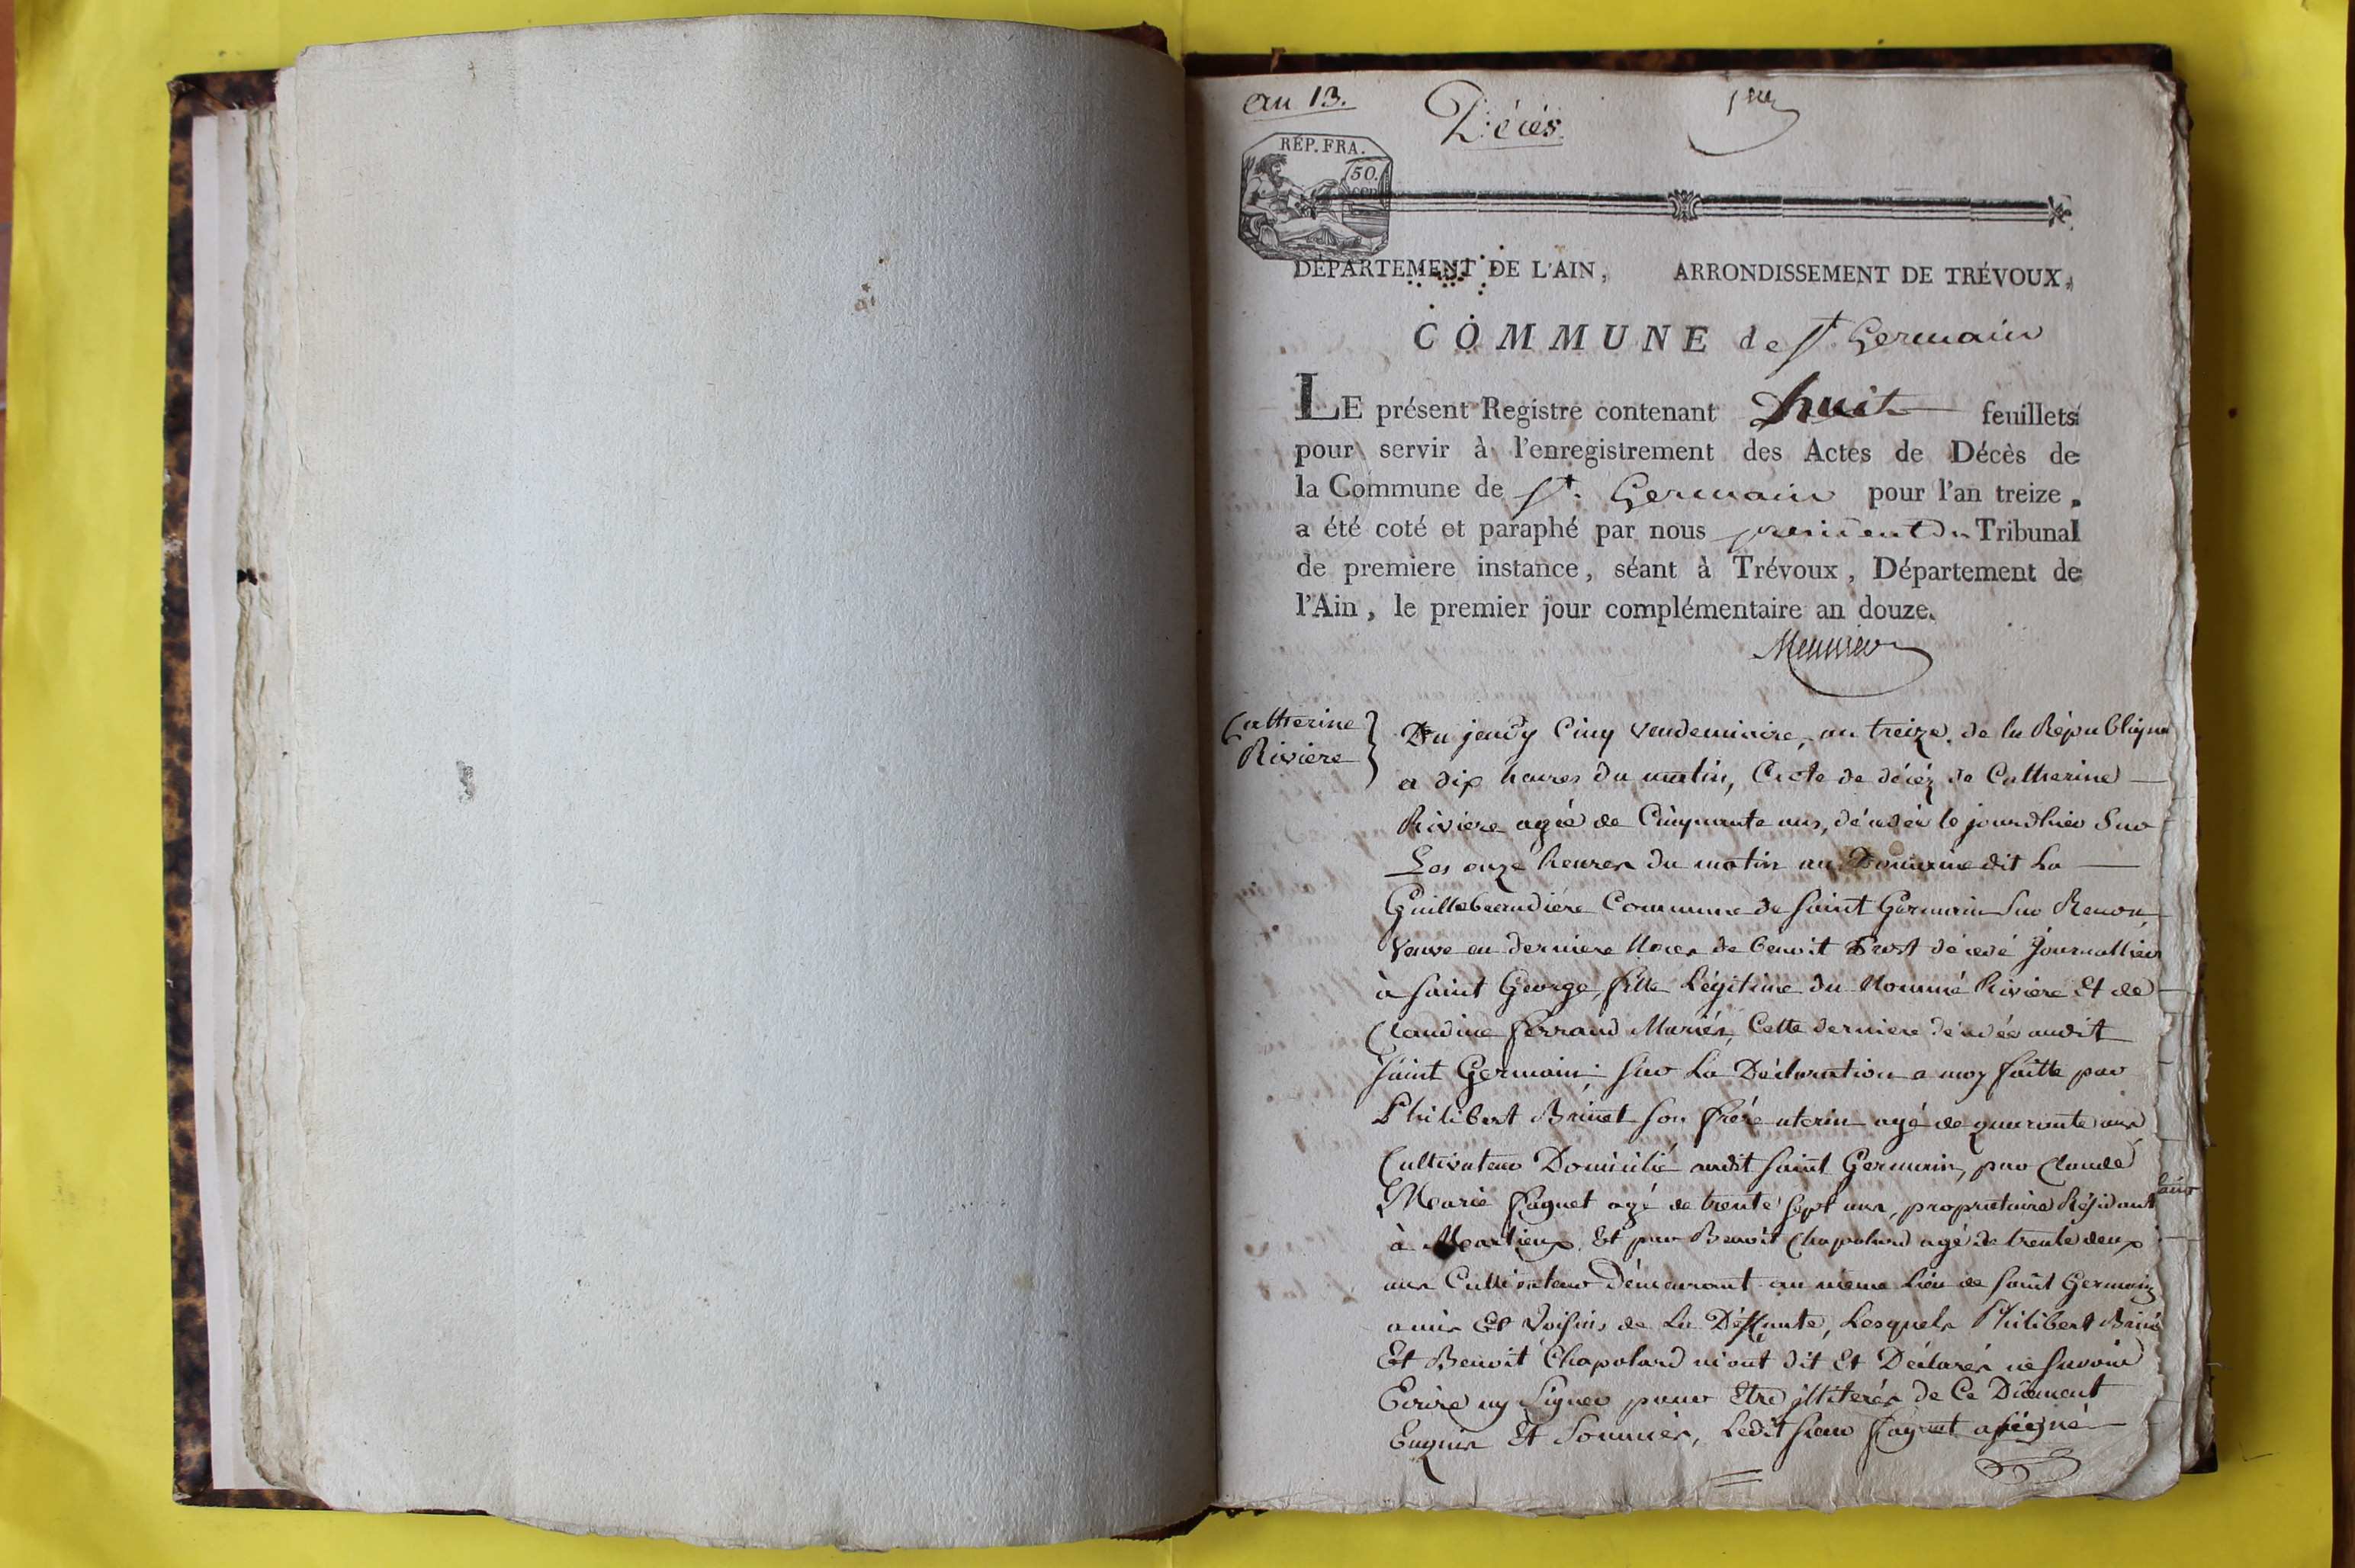 an 13.
Décès
1er
RÉP. FRA.
50.
cen
DÉPARTEMENT DE L'AIN, ARRONDISSEMENT DE TRÉVOUX,
COMMUNE de St. Germain
LE présent Registre contenant huit feuillets
pour servir à l'enregistrement des Actes de Décès de
la Commune de St. Germain pour l'an treize,
a été coté et paraphé par nous president du Tribunal
de premiere instance, séant à Trévoux, Département de
l'Ain, le premier jour complémentaire an douze.
Catherine
Riviere
Du jeudy Cinq vendemiaire, an treize de la République
a dix heures du matin, Acte de décéz de Catherine
Riviere agée de Cinquante ans, décédée le jourdhier Sur
Les onze heures du matin au Domaine dit La
Guillebeaudiére Commune de Saint Germain Sur Renon,
Veuve en derniere Noces de benoit Prost décédé Journallier
à Saint George, fille Légitime du Nommé Riviere Et de
Claudine ferrand Mariés, Cette derniere décédée audit
Saint Germain; Sur La Déclaration a moy faitte par
Philibert Brinet Son frére uterin agé de quarante ans
Cultivateur Domicilié audit Saint Germain, par Claude
Marie faguet agé de trente Sept ans, proprietaire Résidant
à Marlieux, Et par Benoit Chapolard agé de trente deux
ans Cultivateur Démeurant au même Lieu de Saint Germain
amis Et Voisins de La Deffunte, Lesquels Philibert Briné
Et Benoit Chapolard m'ont dit Et Declarés ne Savoir
Ecrire ny Signer pour Etre illiterés de Ce Dûement
Enquis Et Sommés, Ledit Sieur faguet a Signé